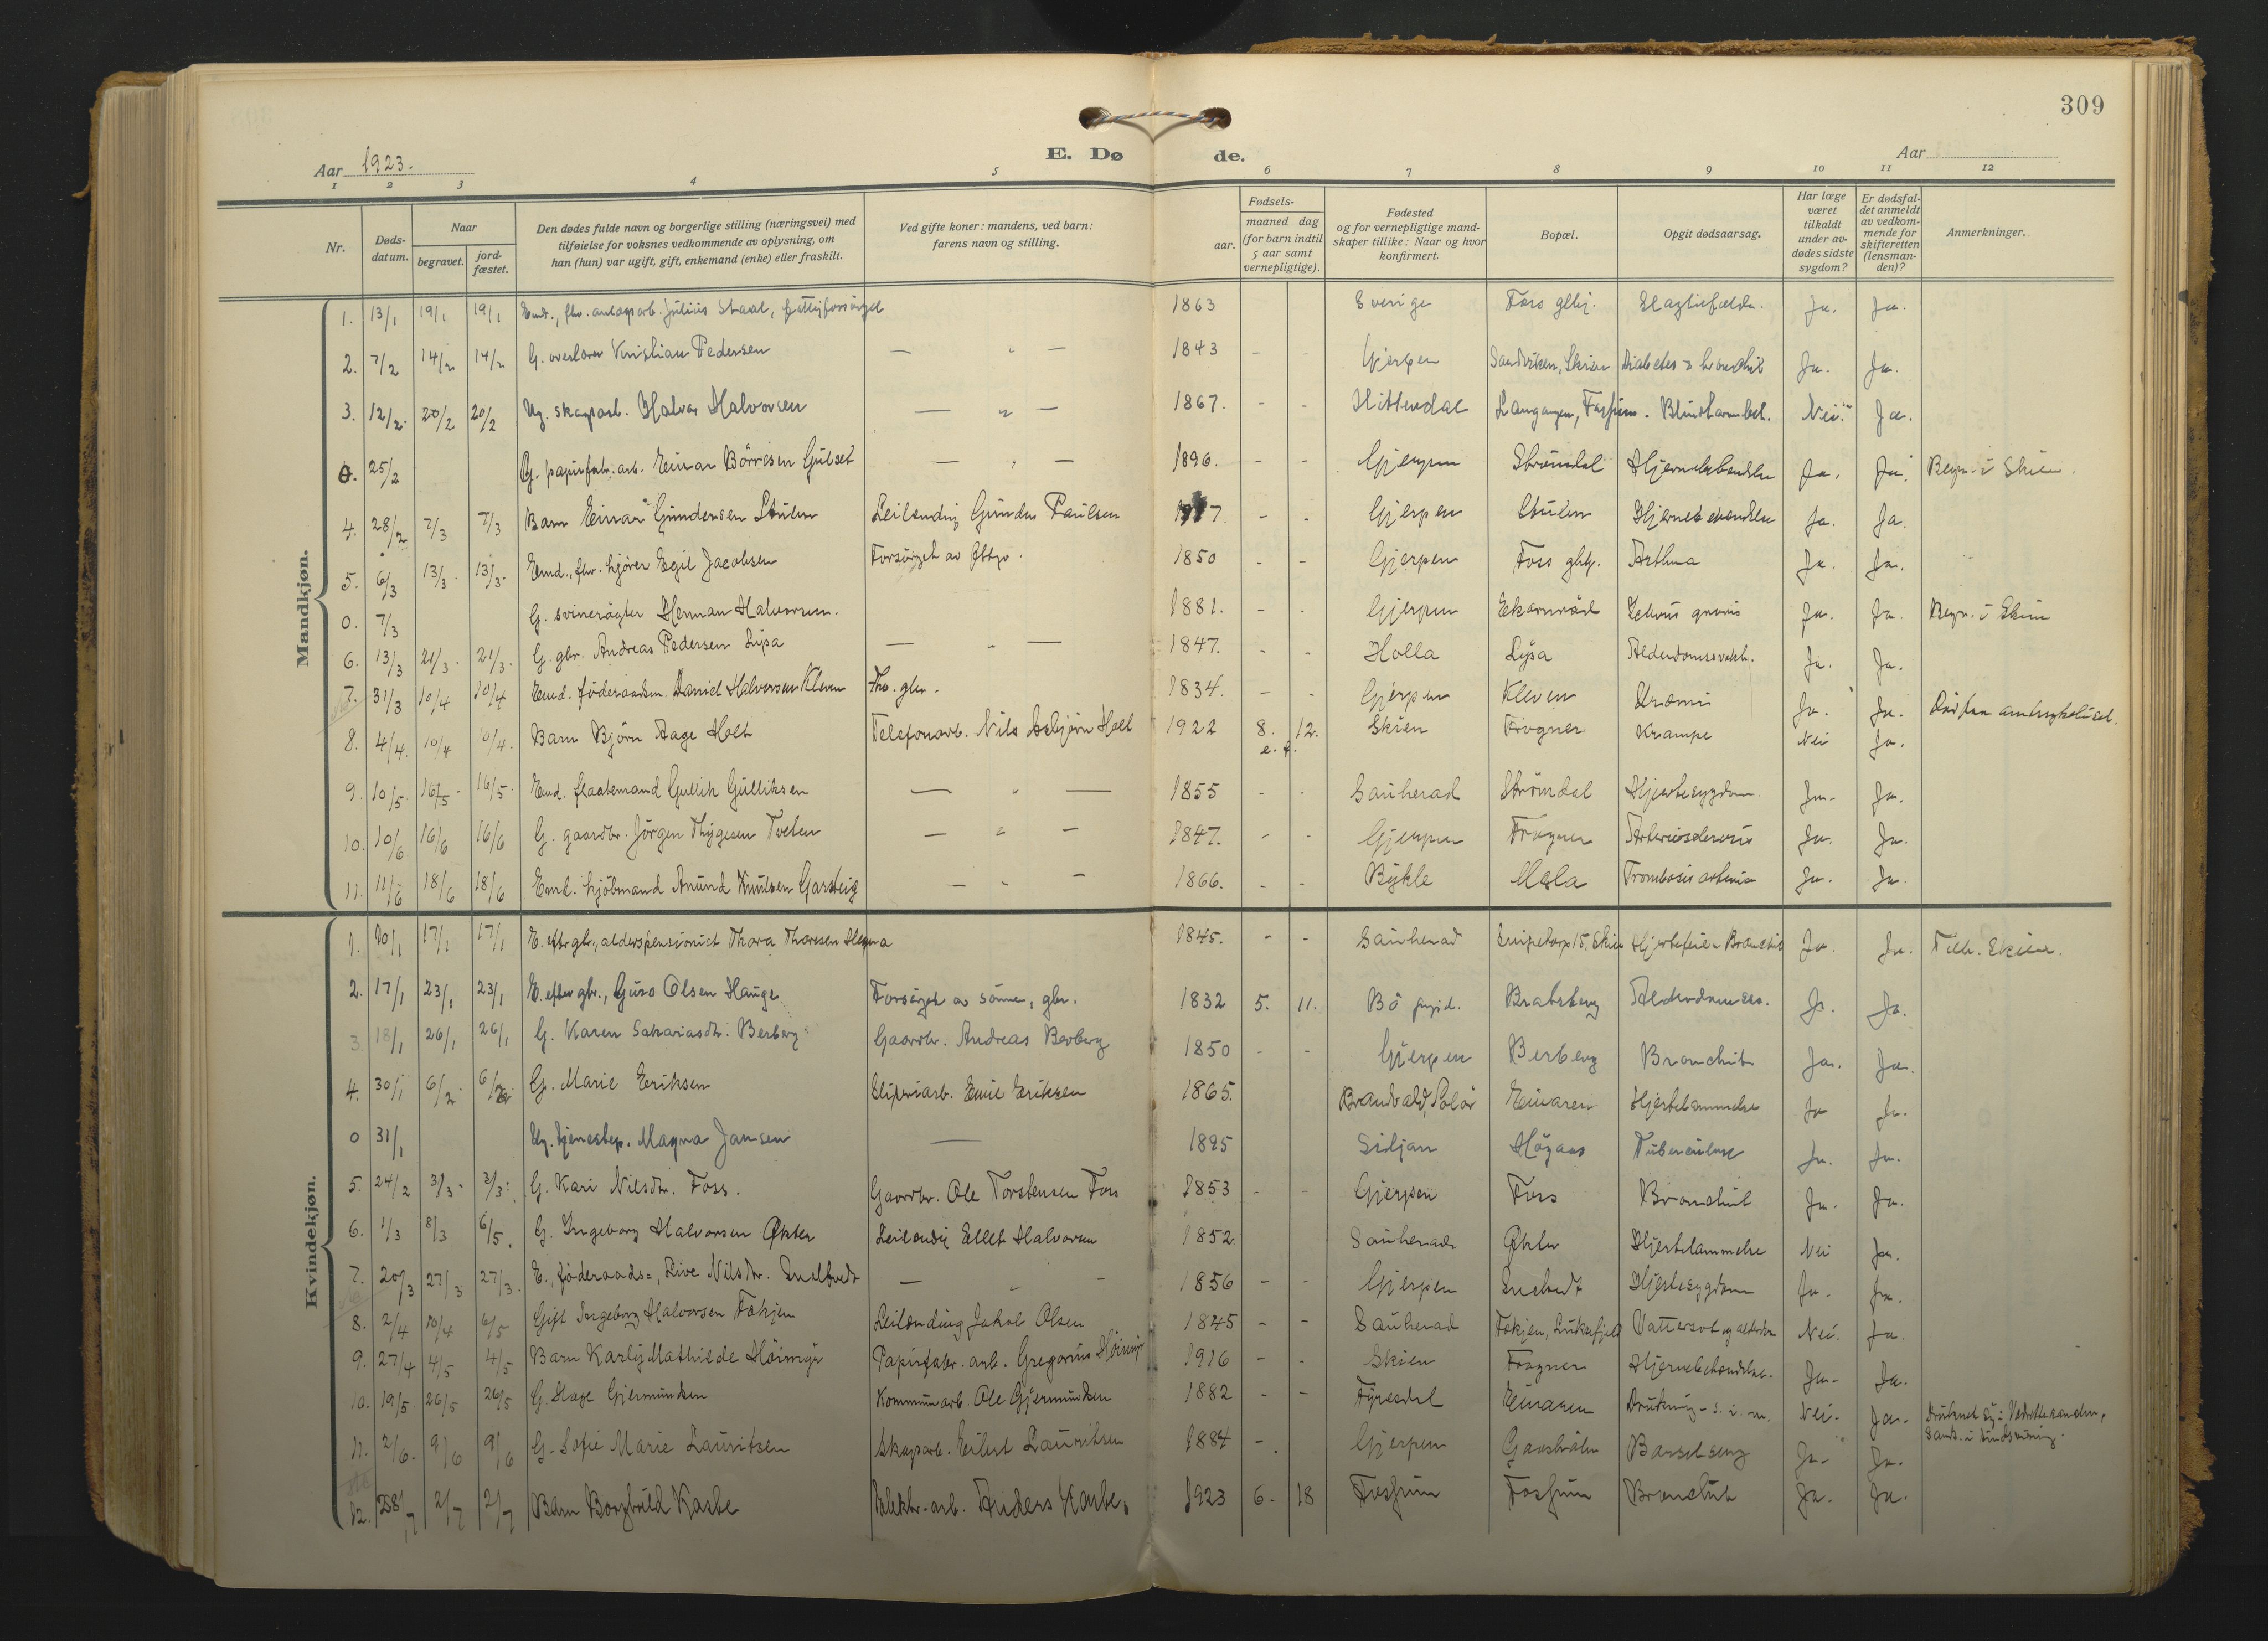 309
Aar 1923.
E. Dø de.
Aar
1 2 3 4 5 6 7 8 9 10 11 12
Nr.
Døds-datum.
Naar
begravet.
jord-fæstet.
Den dødes fulde navn og borgerlige stilling (næringsvei) med
tilføielse for voksnes vedkommende av oplysning, om
han (hun) var ugift, gift, enkemand (enke) eller fraskilt.
Ved gifte koner: mandens, ved barn:
farens navn og stilling.
Fødsels-
aar.
maaned dag
(for barn indtil
5 aar samt
vernepligtige).
Fødested
og for vernepligtige mand-
skaper tillike: Naar og hvor
konfirmert.
Bopæl.
Opgit dødsaarsag.
Har læge
været
tilkaldt
under av-
dødes sidste
sygdom?
Er dødsfal-
det anmeldt
av vedkom-
mende for
skifteretten
(lensman-
den)?
Anmerkninger.
Mandkjøn.
1. 13/1 19/1 19/1 Julius 1863 Sverige Foss Ja. Ja.
2. 7/2 14/2 14/2 G. Kristian Pedersen — " — 1843 - - Gjerpen Sandviken, Skien Diabetes Ja. Ja.
3. 12/2 20/2 20/2 Ug. skogsarb. Halvor Halvorsen — " — 1867. - - Hitterdal Langangen, Fossum. Nei. Ja.
0. 25/2 G. papirfabr. arb. Einar Börresen Gulset — " — 1896. - - Gjerpen Strömdal Ja. Ja. Begr. i Skien.
4. 28/2 7/3 7/3 Barn Einar Gundersen Stulen Leilending Gunder Paulsen - - Gjerpen Stulen Ja. Ja.
5. 6/3 13/3 13/3 Emd., fhv. kjører Egil Jacobsen Forsörget av 1850 - - Gjerpen Foss Asthma Ja. Ja.
0. 7/3 G. svinerögter Herman Halvorsen. 1881. - - Gjerpen Ekornröd Ja. Ja. Begr. i Skien
6. 13/3 21/3 21/3 G. gbr. Andreas Pedersen Lysa — " — 1847. - - Holla Lysa Ja. Ja.
7. 31/3 10/4 10/4 Emd. föderaadsm. Daniel Halvorsen Kleven Fhv. gbr. 1834. - - Gjerpen Kleven Ja. Ja.
8. 4/4 10/4 10/4 Barn Björn Aage Holt Telefonarb. Nils Asbjörn Holt 1922 8. 12. Skien Frogner Krampe Nei Ja.
9. 10/5 16/5 16/5 Emd. flaatemand Gullik Gulliksen — " — 1855 - - Sauherad Strömdal Hjertesygdom. Ja. Ja.
10. 10/6 16/6 16/6 G. gaardbr. Jörgen Thygesen Tveten — " — 1847. - - Gjerpen Frogner Ja. Ja.
11. 11/6 18/6 18/6 Emd. kjöbmand Anund Knutsen — " — 1866. - - Bykle Mæla Ja. Ja.
Kvindekjøn.
1. 10/1 17/1 17/1 E. efter gbr., alderspensionist Thora Thoresen 1845. - - Sauherad Ja. Ja.
2. 17/1 23/1 23/1 E. efter gbr., Guro Olsen Hauge Forsörget av sönner, gbr. 1832 5. 11. Bö Bratsberg Ja. Ja.
3. 18/1 26/1 26/1 G. Karen Sakariasdtr. Berberg Gaardbr. Andreas Berberg 1850 - - Gjerpen Berberg Bronchit Ja. Ja.
4. 30/1 6/2 6/2 G. Marie Eriksen Sliperiarb. Emil Eriksen 1865. Brandvald, Solör Hjertelammelse Ja Ja.
0 31/1 Ug. tjenestep. Magna Jansen — 1895 Siljan Högaas Tuberculose Ja. Ja.
5. 24/2 3/3 3/3 G. Kari Nilsdtr. Foss. Gaardbr. Ole Torstensen Foss 1853 - - Gjerpen Foss Bronchit Ja. Ja.
6. 1/3 8/3 6/5 G. Ingeborg Halvorsen Økter Leilending Ellef Halvorsen 1852 Sauherad Økter Hjertelammelse Nei Ja.
7. 20/3 27/3 27/3 E. föderaads-, Live Nilsdtr. — " - 1856 - - Gjerpen Hjertesygdom Ja. Ja.
8. 2/4 10/4 6/5 Gift Ingeborg Halvorsen Fækjen Leilending Jakob Olsen 1845 - - Sauherad Fækjen, Luksefjeld Vattersot og Nei. Ja.
9. 27/4 4/5 4/5 Barn Karly Mathilde Höimyr Papirfabr. arb. Gregorius Höimyr 1916 - - Skien Frogner Hjernebetændelse. Ja. Ja.
10. 19/5 26/5 26/5 G. Hæge Gjermundsen Kommunearb. Ole Gjermundsen 1882 - - Fyresdal Drukning Nei. Ja.
11. 2/6 9/6 9/6 G. Sofie Marie Lauritsen Skogsarb. Eilert Lauritsen 1884 - Gjerpen Barselseng Ja. Ja.
12. 2/7 2/7 Barn Borghild Kasbe Elektr. arb. Anders Kasbe. 1923 6. 18 Fossum Fossum Bronchit Ja. Ja.